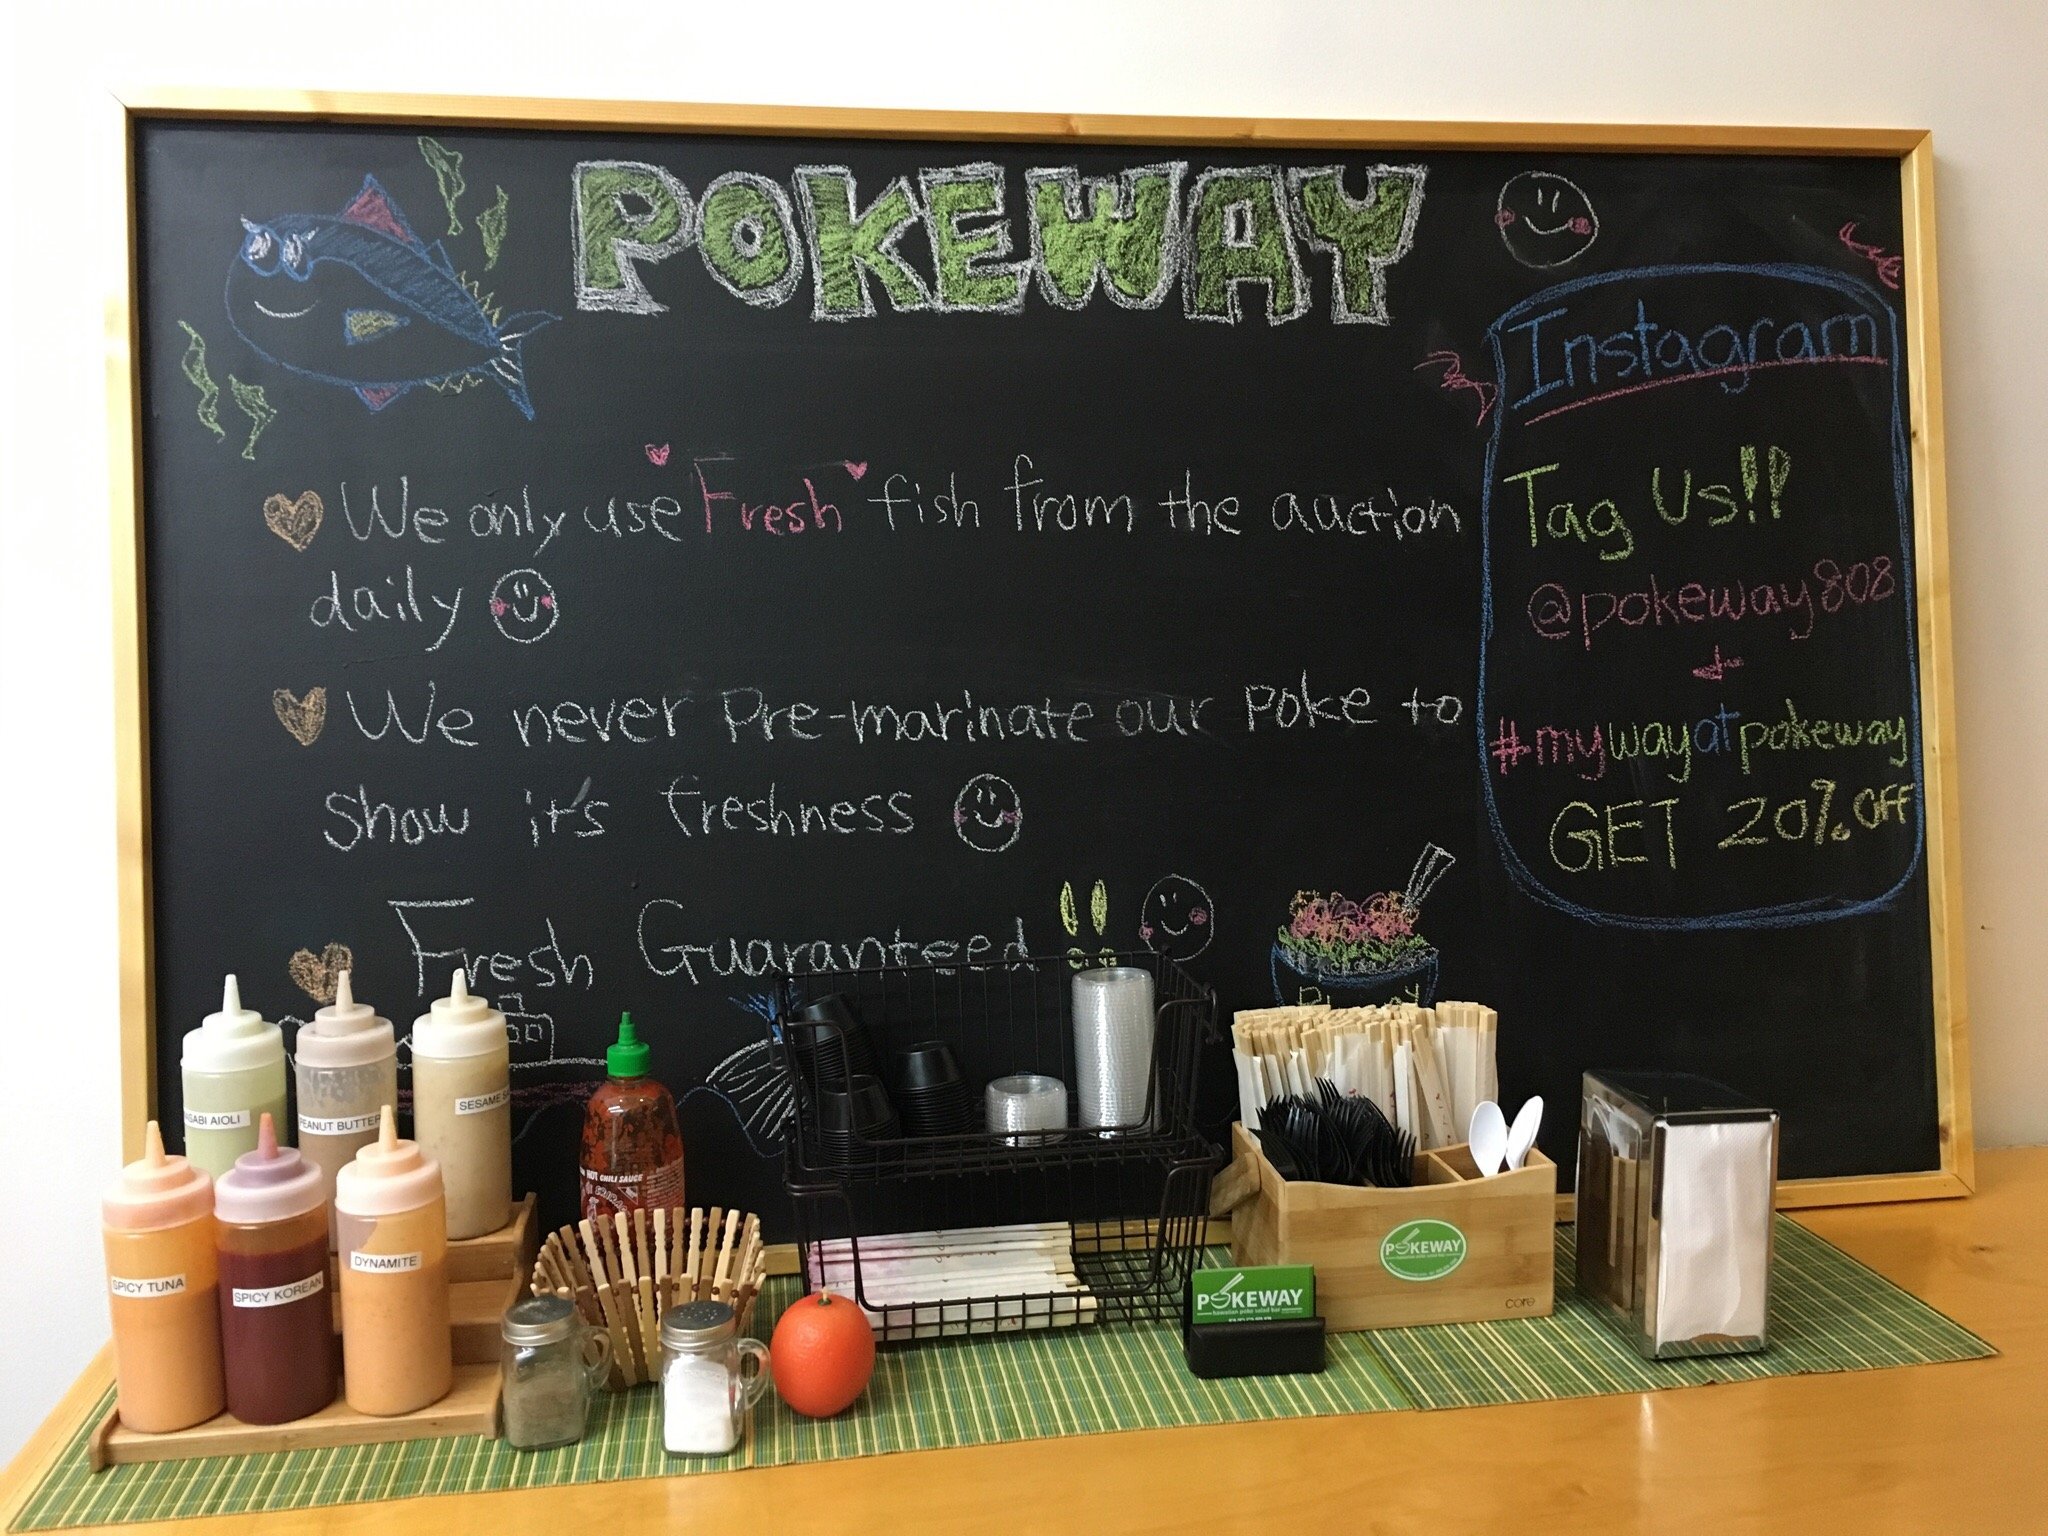 POKEWAY
We only use Fresh fish from the auction
daily
We never Pre-marinate our Poke to
show it's freshness
Fresh Guaranteed !!
Instagram
Tag Us!!
@pokeway808
+
#mywayatpokeway
GET 20% OFF
PEANUT BUTTER
SESAME
AIOLI
SPICY TUNA
SPICY KOREAN
DYNAMITE
HOT CHILI SAUCE
POKEWAY
hawaiian poke salad bar
POKEWAY
core